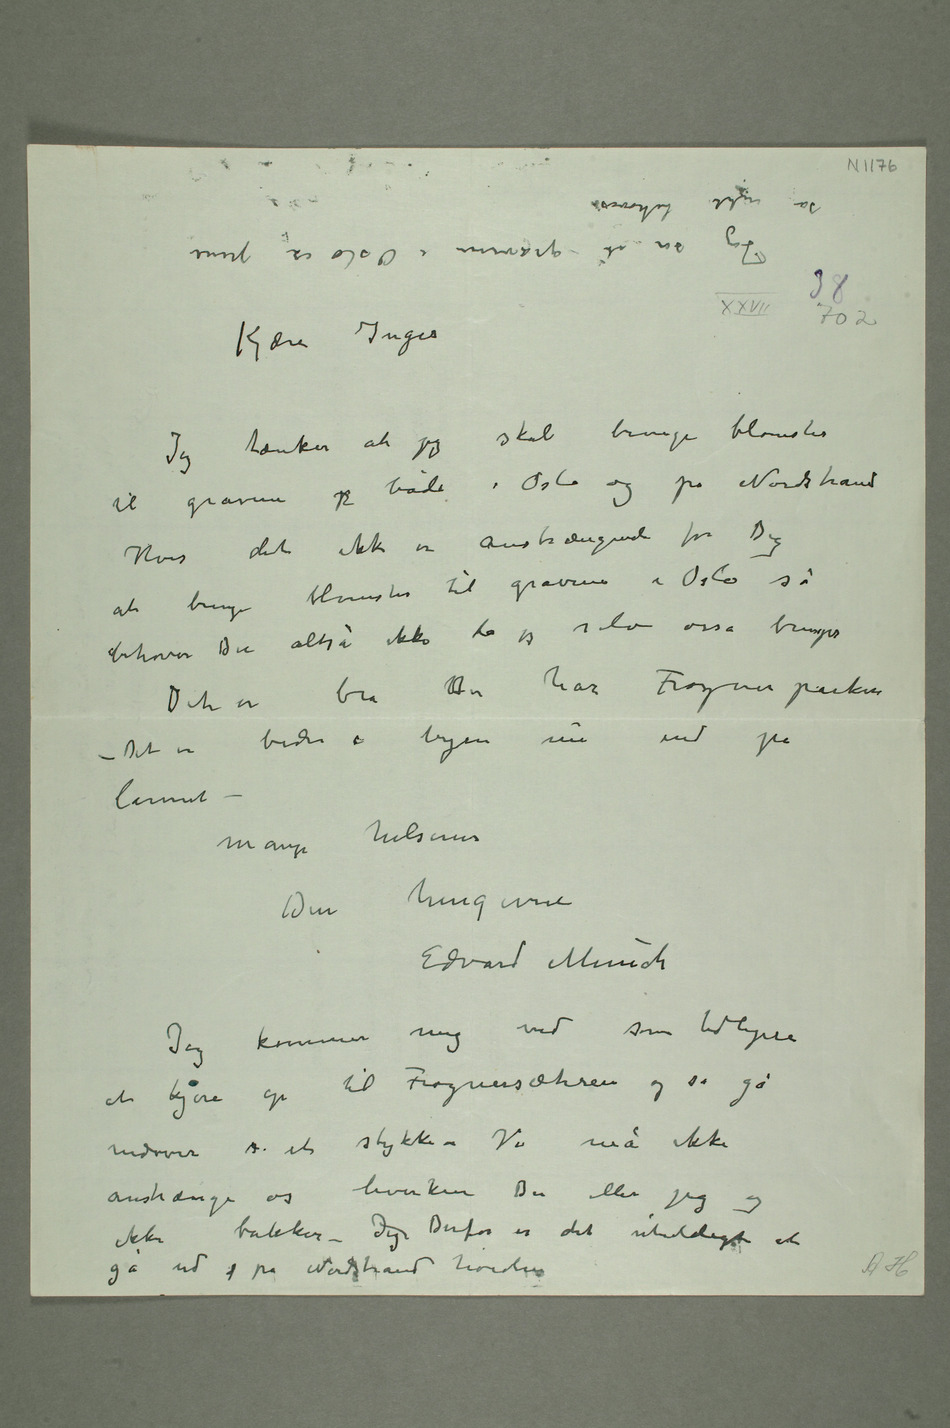 N 1176
Jeg ser på gravene i Oslo så meget
som behøves
38
XXVII
702
Kjære Inger
Jeg tænker at jeg skal bringe blomster
til gravene både i Oslo og på Nordstrand
Hvis det ikke er anstrængende for Dig
at bringe blomster til gravene i Oslo så
behøver Du altså ikke da jeg selv osså bringer
Det er bra Du har Frognerparken
– Det er bedre i byen nu end på
lannet –
mange hilsener
Din hengivne
Edvard Munch
Jeg kommer mig ved som tidligere
at kjøre op til Frognersætren og så gå
nedover et stykke – Vi må ikke
anstrænge os hverken Du eller jeg og
ikke bakker – Derfor er det uheldigt at
gå ud på Nordstrand høiden
A H